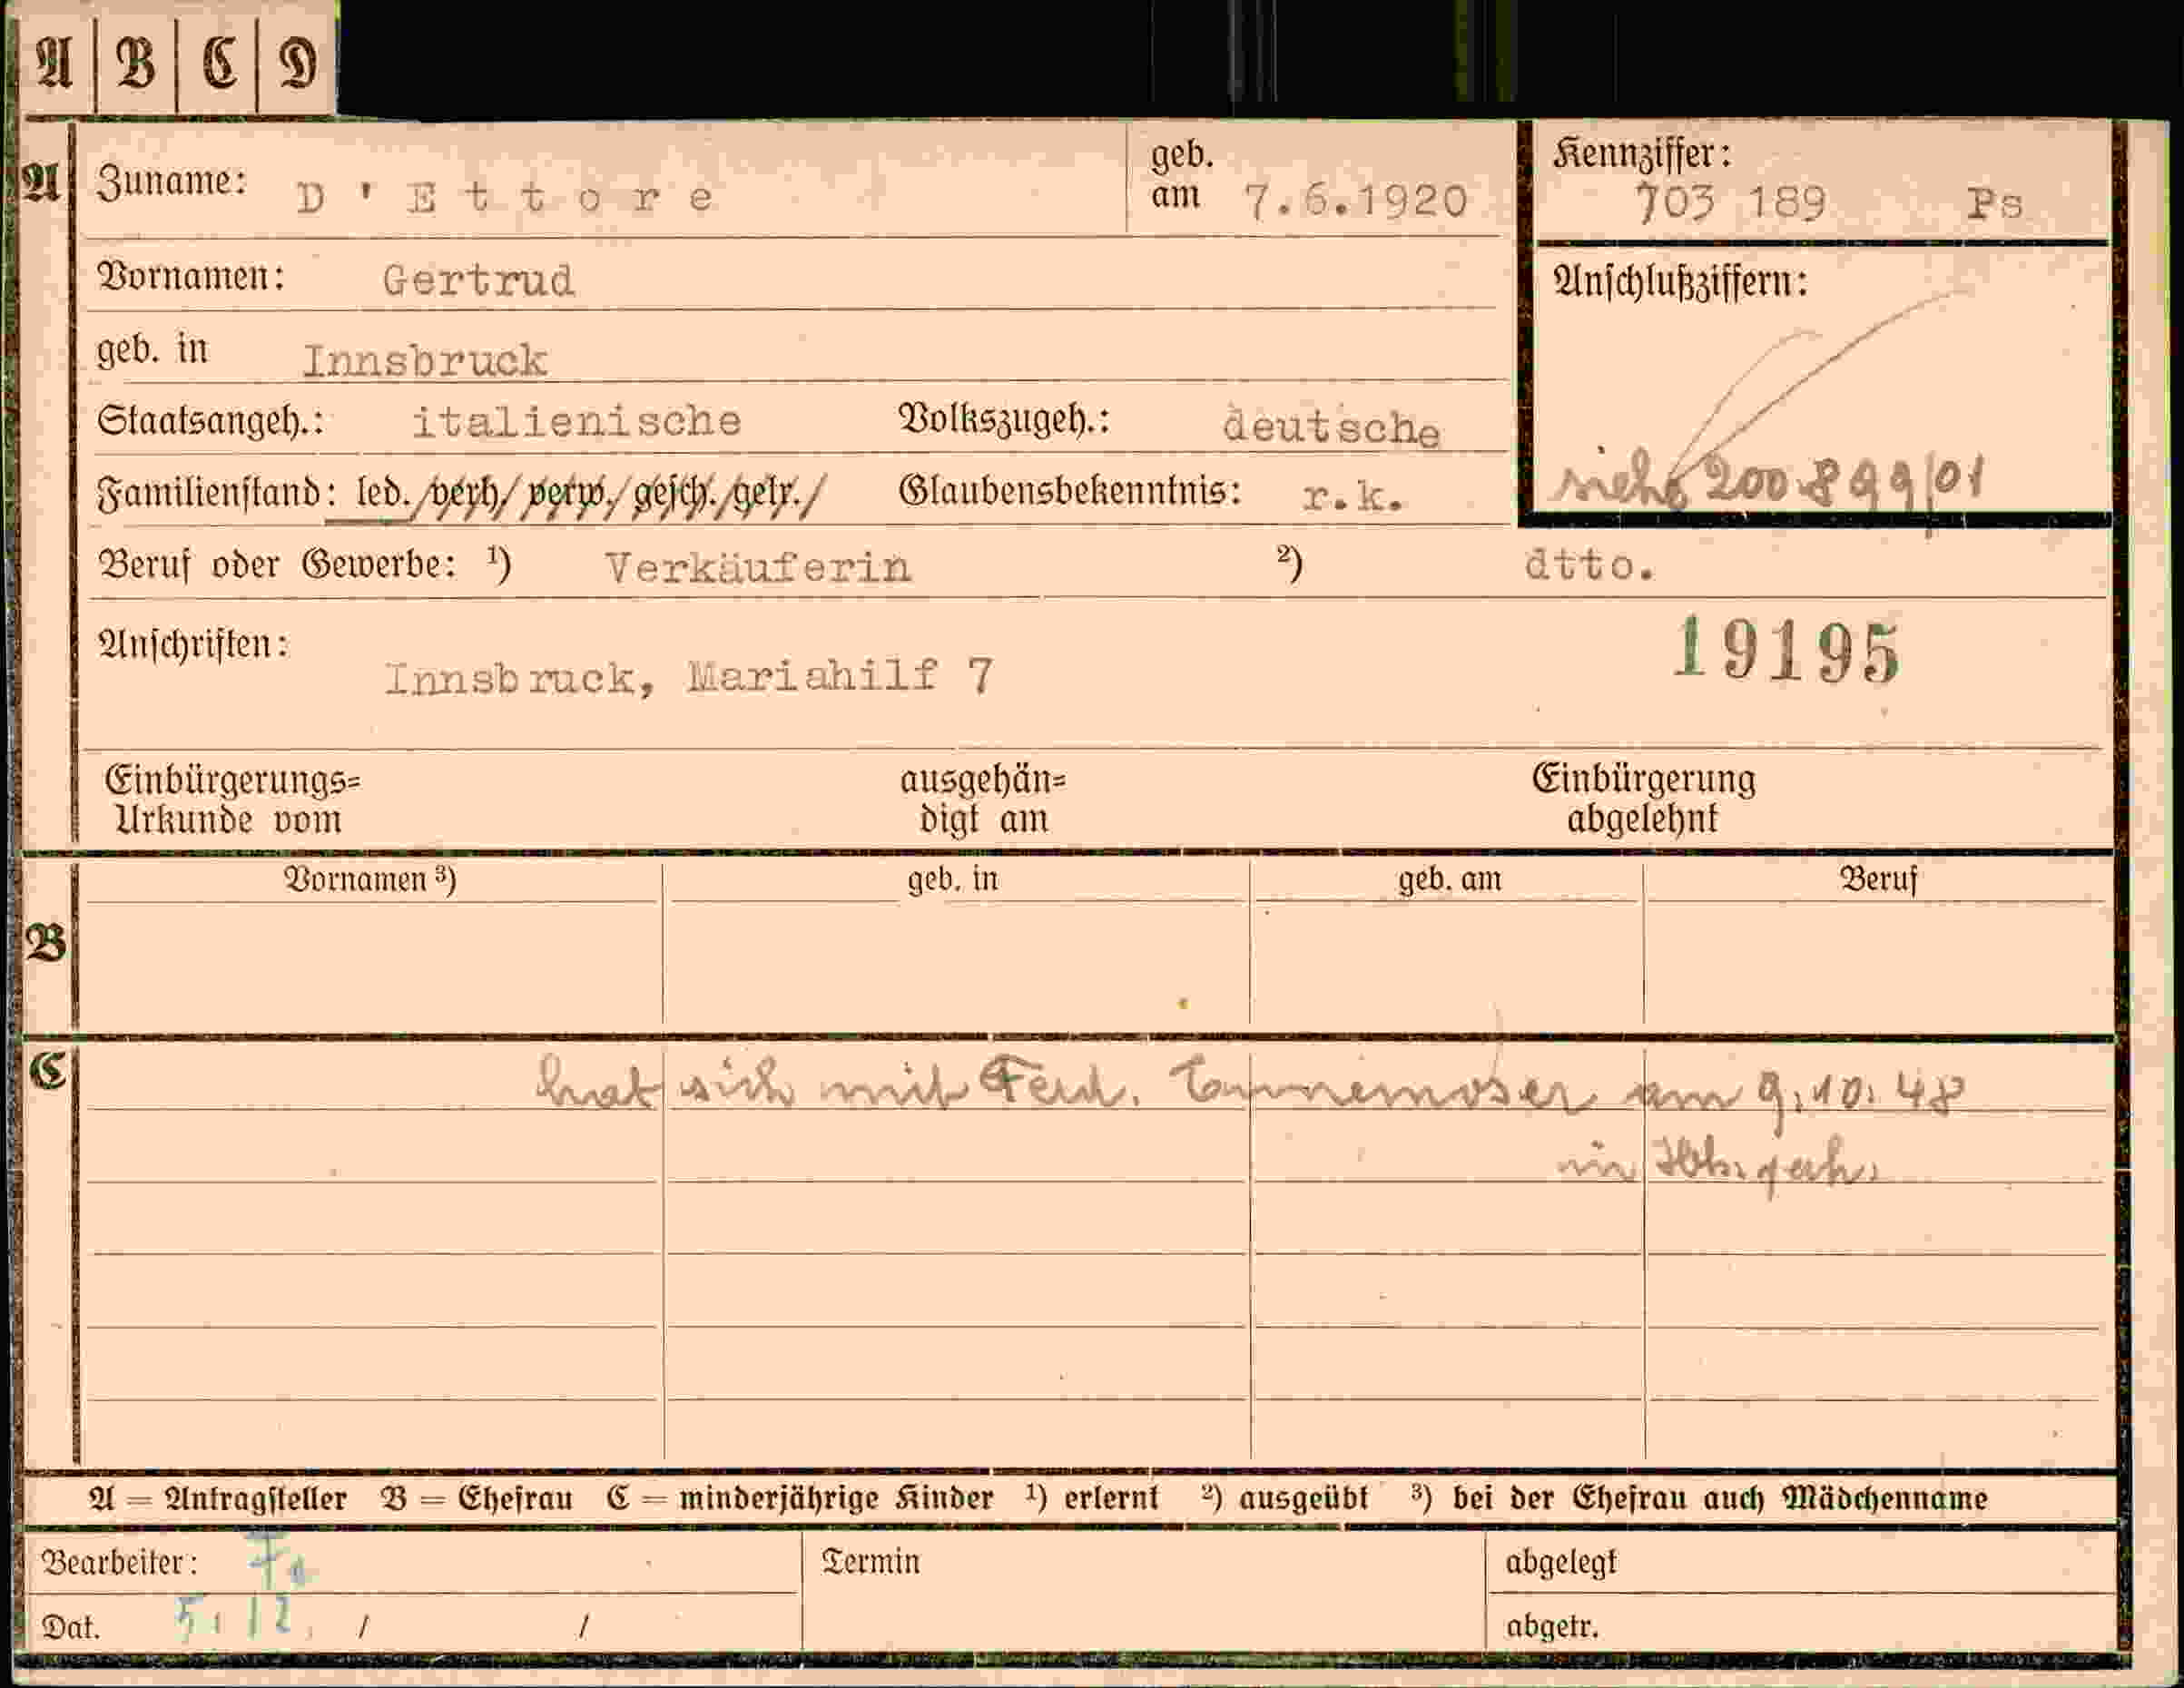 A B C D
A Zuname: D'Ettore geb. am 7.6.1920 Kennziffer: 703 189 Ps
Vornamen: Gertrud Anschlußziffern:
geb. in Innsbruck
Staatsangeh.: italienische Volkszugeh.: deutsche
siehe 200 899/01
Familienstand: led./verh/verw./gesch./getr./ Glaubensbekenntnis: r.k.
Beruf oder Gewerbe: ¹) Verkäuferin ²) dtto.
Anschriften: 19195
Innsbruck, Mariahilf 7
Einbürgerungs= ausgehän= Einbürgerung
Urkunde vom digt am abgelehnt
Vornamen ³) geb. in geb. am Beruf
B
C hat sich mit Ferd. am 9.10.48
in
A = Antragsteller B = Ehefrau C = minderjährige Kinder ¹) erlernt ²) ausgeübt ³) bei der Ehefrau auch Mädchenname
Bearbeiter: Termin abgelegt
Dat. 5. 12. / / abgetr.